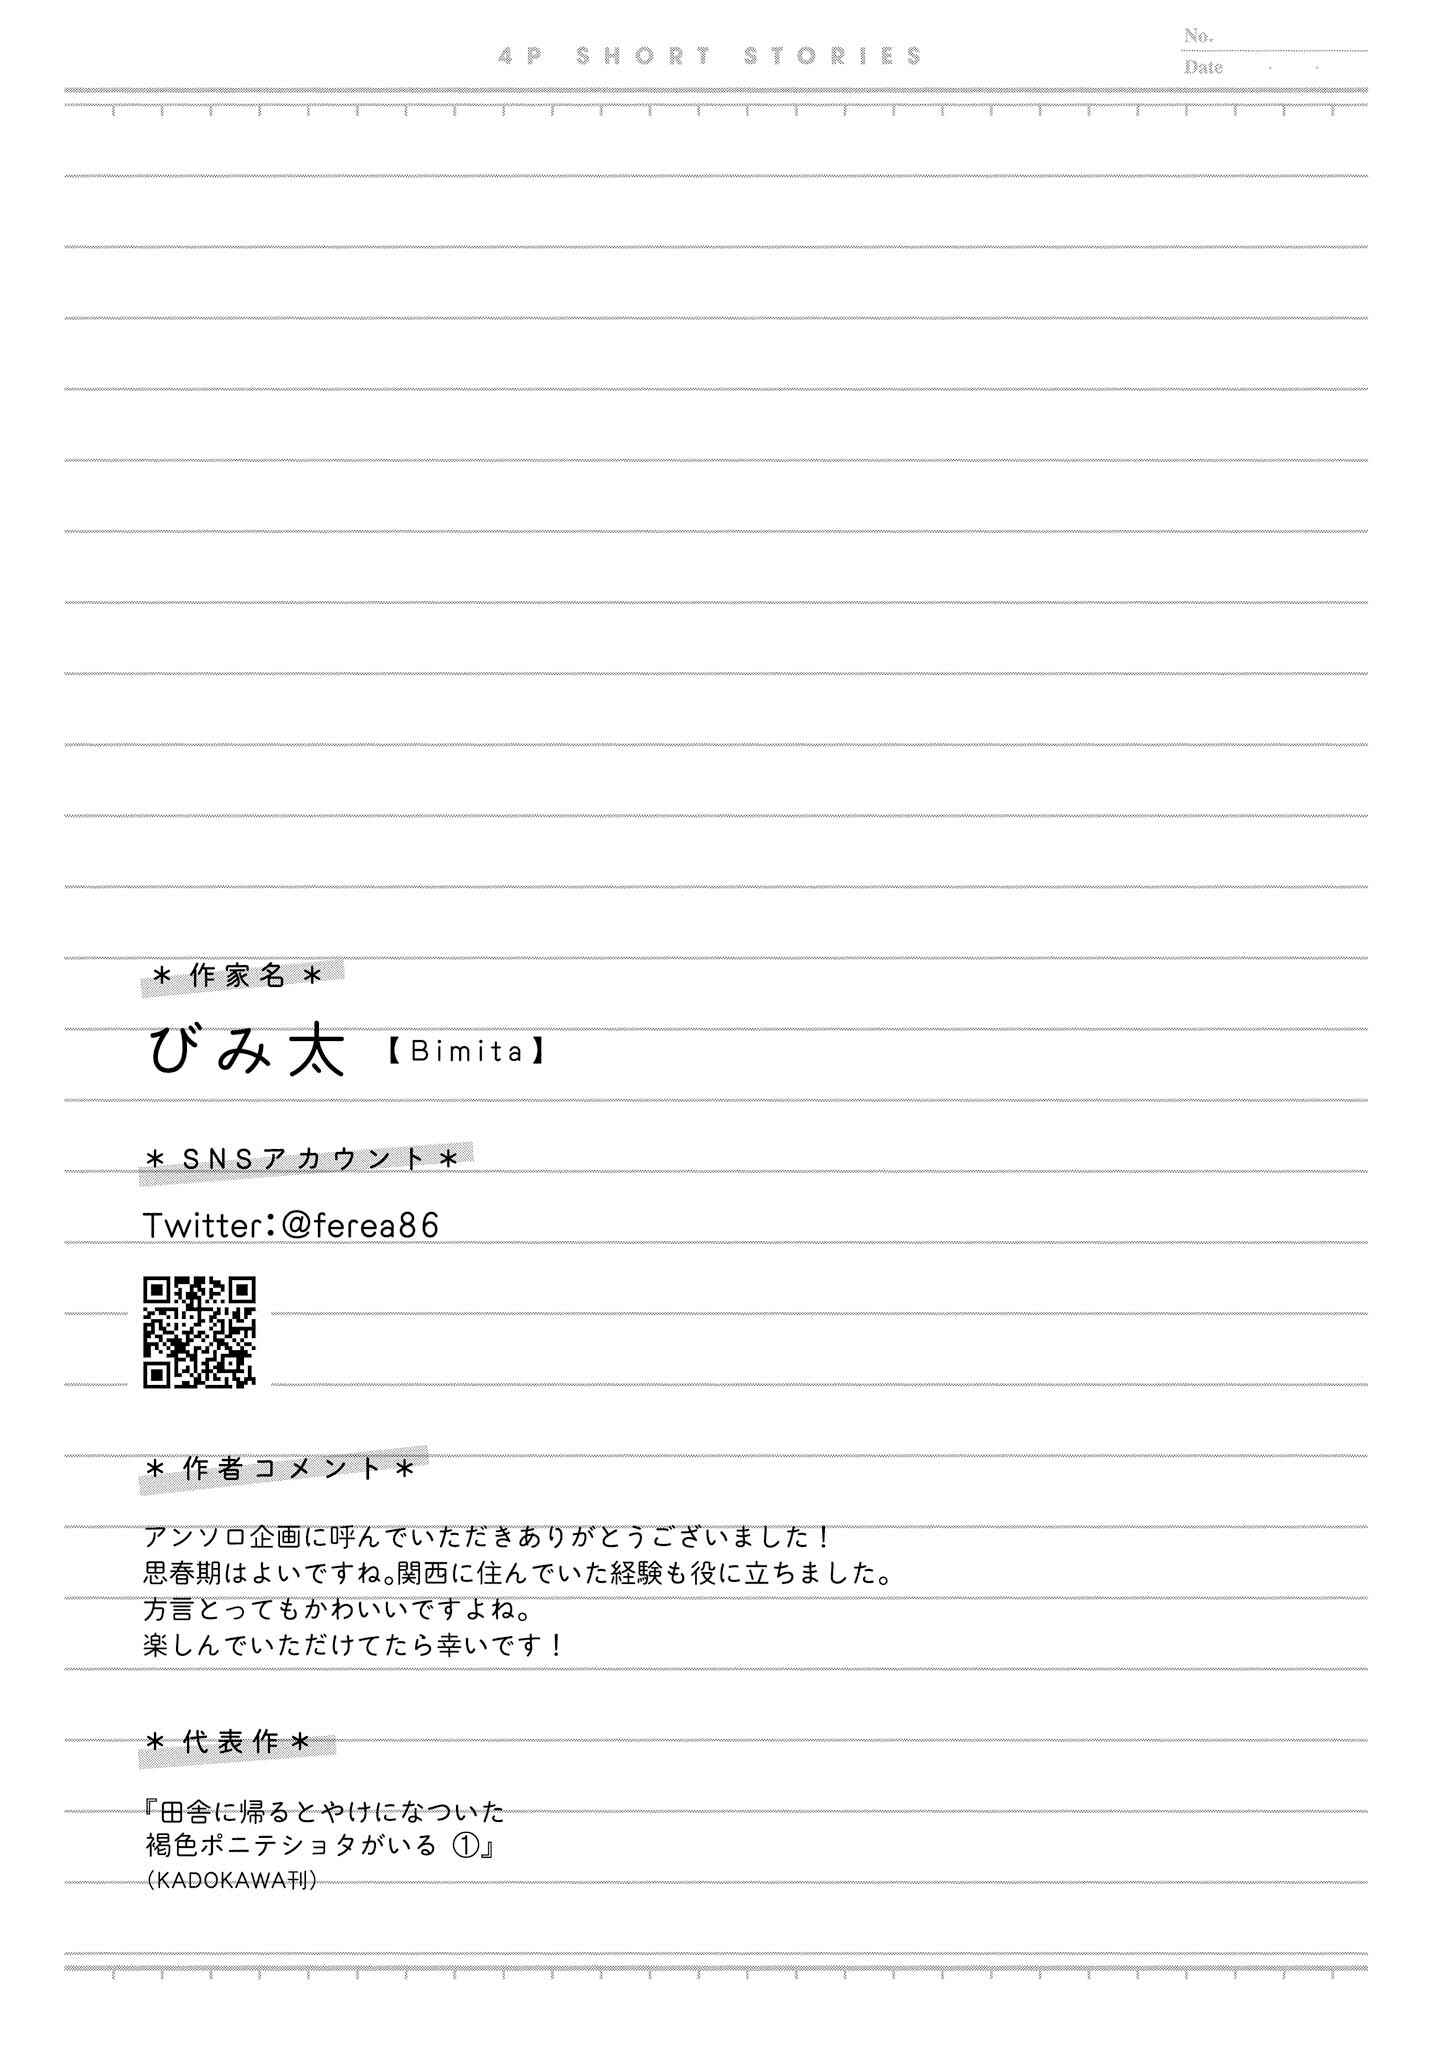 4P SHORT STORIES
No.
Date ・ ・
＊ 作家名 ＊
びみ太 【Bimita】
＊ SNSアカウント＊
Twitter：@ferea86
＊ 作者コメント＊
アンソロ企画に呼んでいただきありがとうございました！
思春期はよいですね。関西に住んでいた経験も役に立ちました。
方言とってもかわいいですよね。
楽しんでいただけてたら幸いです！
＊ 代表作＊
『田舎に帰るとやけになついた
褐色ポニテショタがいる ①』
（KADOKAWA刊）